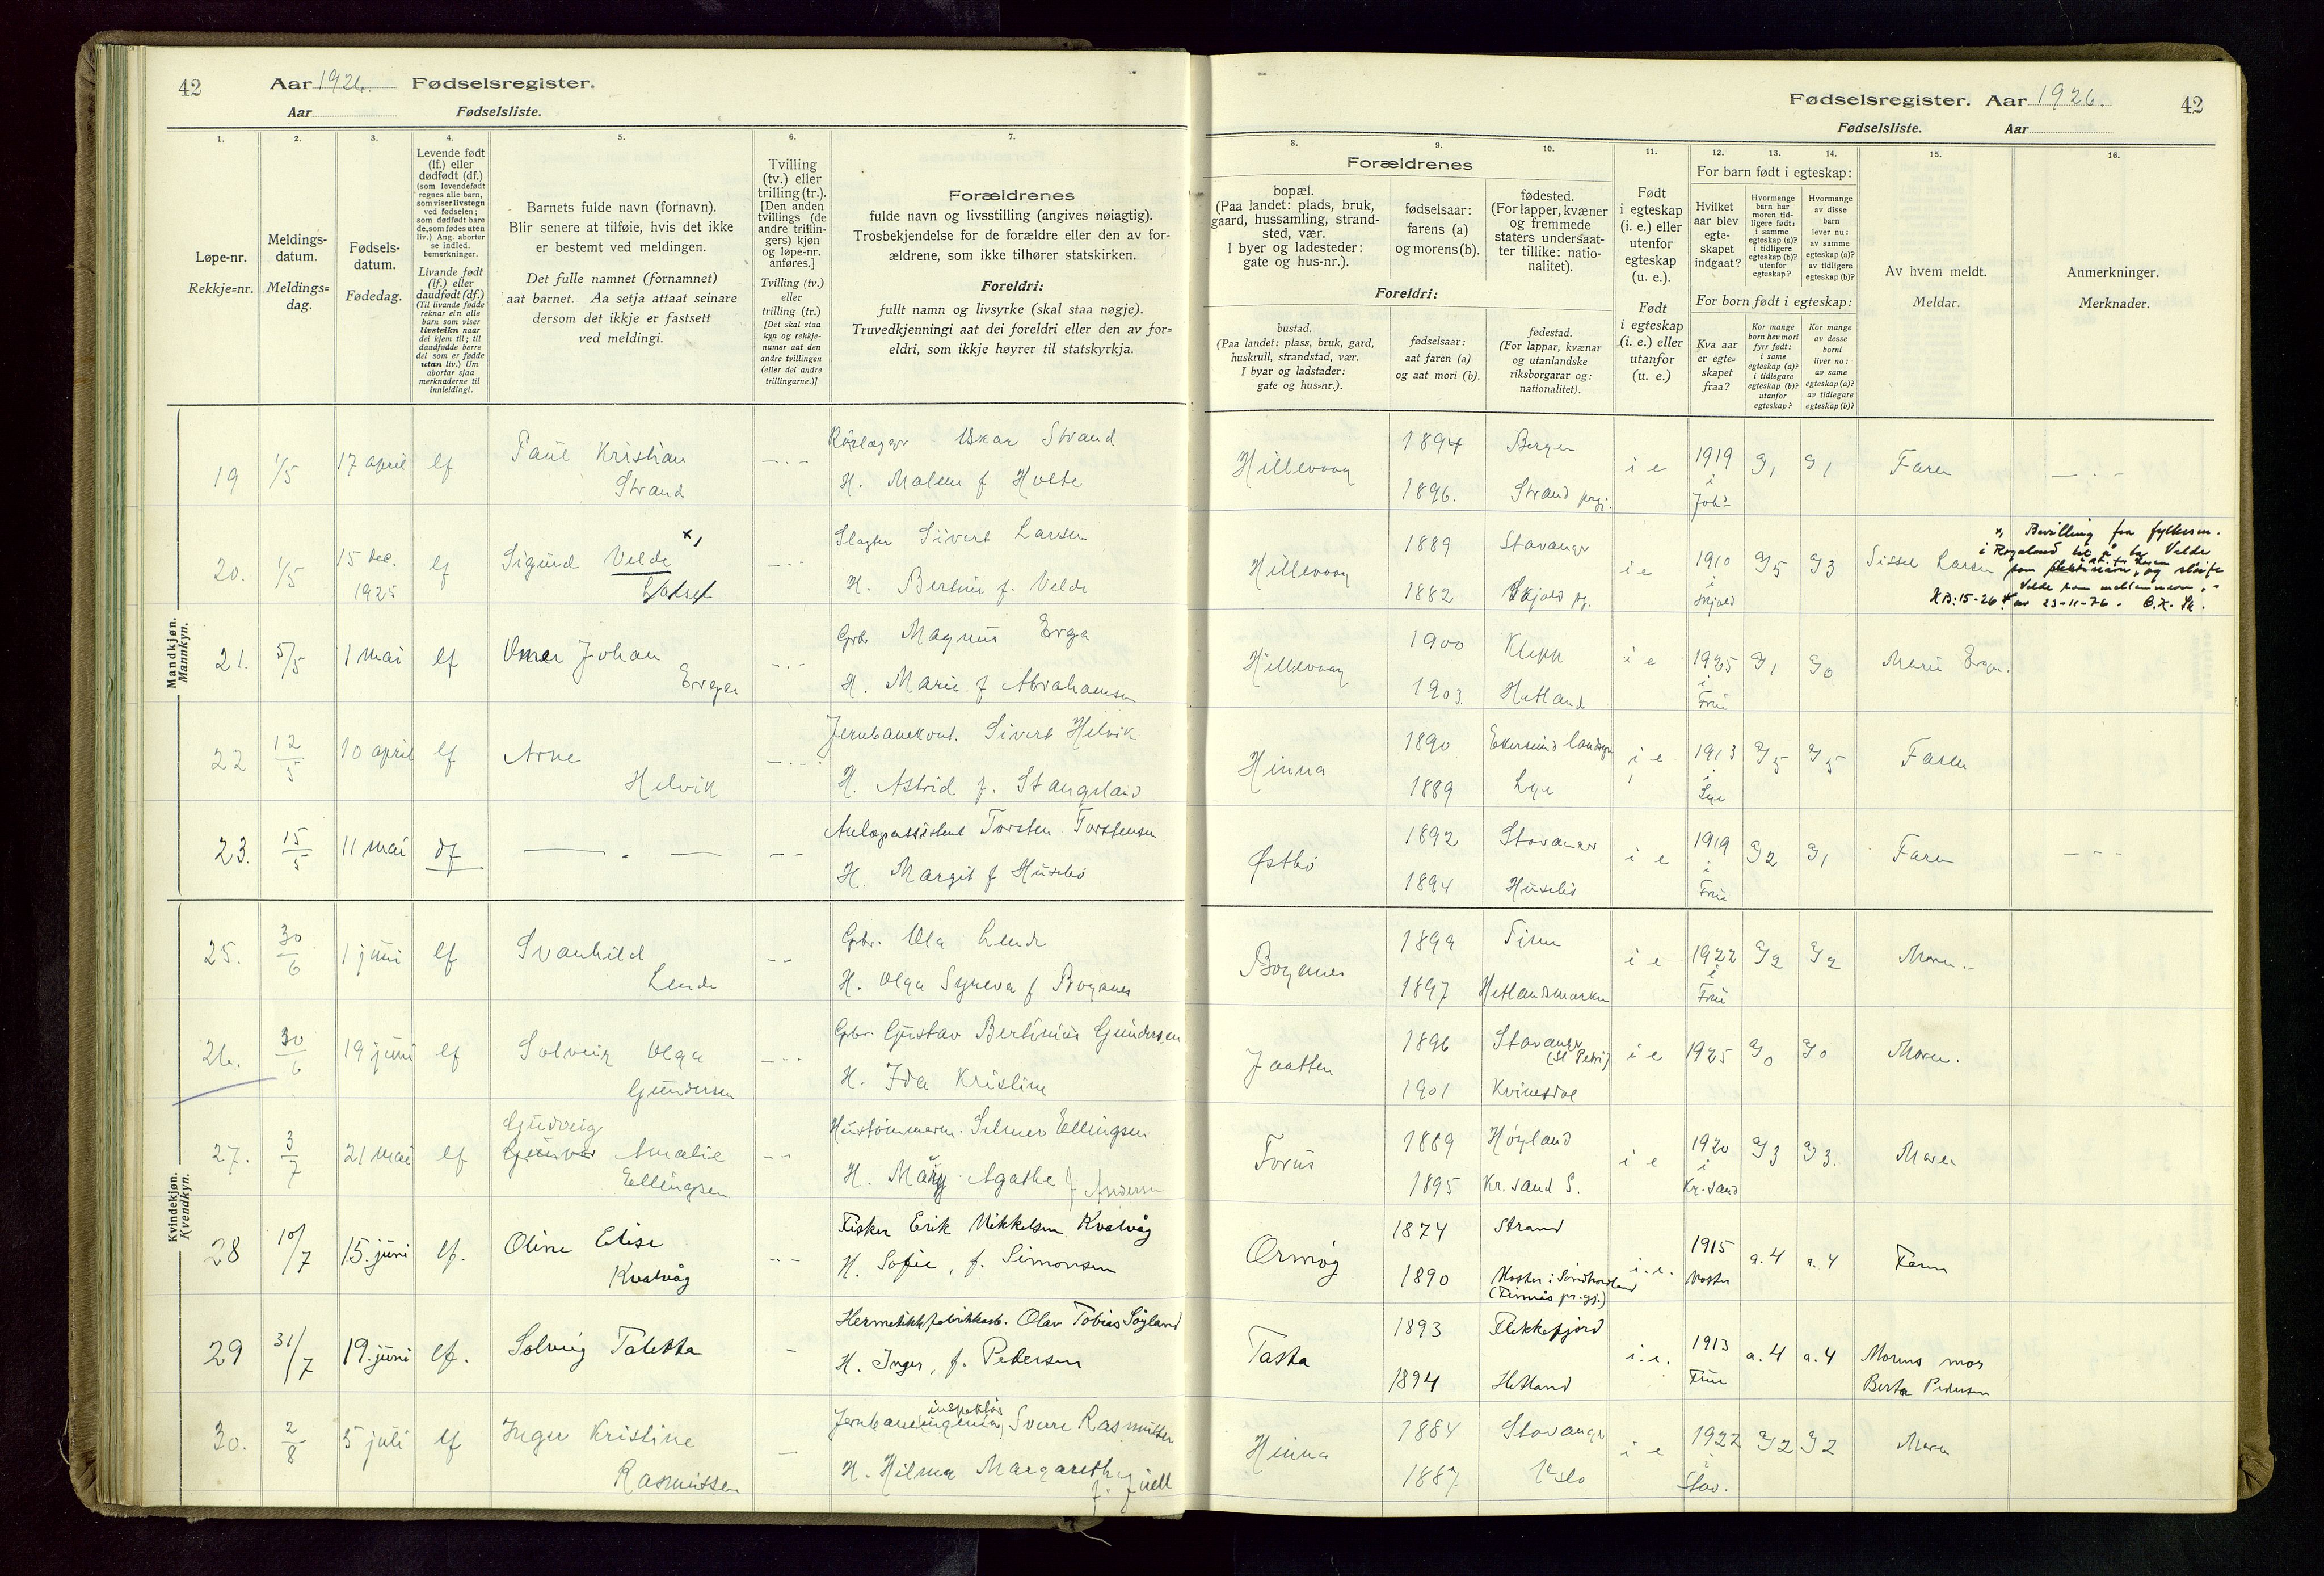 42
Aar 1926. Fødselsregister.
Aar Fødselsliste.
1.
2.
3.
4.
5.
6.
7.
Løpe-nr.
Rekkje=nr.
Meldings-
datum.
Meldings=
dag.
Fødsels-
datum.
Fødedag.
Levende født
(lf.) eller
dødfødt (df.)
(som levendefødt
regnes alle barn,
som viser livstegn
ved fødselen;
som dødfødt bare
de, som fødes uten
liv.) Ang. aborter
se indled.
bemerkninger.
Livande født
(lf.) eller
daudfødt (df.)
(Til livande fødde
reknar ein alle
barn som viser
livsteikn naar
dei kjem til; til
daudfødde berre
dei som er fødde
utan liv.) Um
abortar sjaa
merknaderne til
innleidingi.
Barnets fulde navn (fornavn).
Blir senere at tilføie, hvis det ikke
er bestemt ved meldingen.
Det fulle namnet (fornamnet)
aat barnet. Aa setja attaat seinare
dersom det ikkje er fastsett
ved meldingi.
Tvilling
(tv.) eller
trilling (tr.).
[Den anden
tvillings (de
andre trillin-
gers) kjøn
og løpe-nr.
anføres.]
Tvilling (tv.)
eller
trilling (tr.)
[Det skal staa
kyn og rekkje-
numer aat den
andre tvillingen
(eller dei andre
trillingarne.)]
Forældrenes
fulde navn og livsstilling (angives nøiagtig).
Trosbekjendelse for de forældre eller den av for-
ældrene, som ikke tilhører statskirken.
Foreldri:
fullt namn og livsyrke (skal staa nøgje).
Truvedkjenningi aat dei foreldri eller den av for=
eldri, som ikkje høyrer til statskyrkja.
Mandkjøn.
Mannkyn.
19 1/5 17 april lf Paul Kristian Rørlægger Oskar Strand
Strand H. Malene f Holte
20. 1/5 15 dec. lf Sigurd Velde x) Slagter Sivert Larsen
1925 H. Bertine f. Velde
21. 5/5 1 mai lf Omar Johan Grb. Magnus Erga
Erga H. Marie f Abrahamsen
22 12/5 10 april lf Arne Jernbanekont. Sivert Helvik
Helvik H. Astrid f. Stangeland
23. 15/5 11 mai df Torsten Torstensen
H. Margit f Husebø
Kvindekjøn.
Kvendkyn.
25. 30/6 1 juni lf Svanhild Gbr. Ola Lende
Lende H. Olga Syneva f Boganes
26. 30/6 19 juni lf Solveig Olga Gbr. Gustav Bertinius Gundersen
Gundersen H. Ida Kristine
Gudveig
27. 3/7 21 mai lf Gunvor Amalie Hustømmerm. Selmer Ellingsen
Ellingsen H. Mary Agathe f Andersen
28 10/7 15. juni lf. Oline Elise Fisker Erik Mikkelsen Kvalvåg
Kvalvåg H. Sofie, f. Simonsen
29 31/7 19. juni lf. Solveig Taletta Hermetikkfabrikkarb. Olav Tobias Søyland
H. Inger, f. Pedersen
inspektør
30. 2/8 5 juli lf Inger Kristine Jernbaneingeniør Sverre Rasmussen
Rasmussen H. Hilma Margarethe
f. Juell
Fødselsregister. Aar 1926. 42
Fødselsliste. Aar
8.
9.
10.
11.
12.
13.
14.
15.
16.
Forældrenes
bopæl.
(Paa landet: plads, bruk,
gaard, hussamling, strand-
sted, vær.
I byer og ladesteder:
gate og hus-nr.).
fødselsaar:
farens (a)
og morens (b).
fødested.
(For lapper, kvæner
og fremmede
staters undersaat-
ter tillike: natio-
nalitet).
Foreldri:
bustad.
(Paa landet: plass, bruk, gard,
huskrull, strandstad, vær.
I byar og ladstader:
gate og hus=nr.).
fødselsaar:
aat faren (a)
og aat mori (b).
fødestad.
(For lappar, kvænar
og utanlandske
riksborgarar og:
nationalitet).
Født
i egteskap
(i. e.) eller
utenfor
egteskap
(u. e.).
Født
i egteskap
(i. e.) eller
utanfor
(u. e.)
For barn født i egteskap:
Hvilket
aar blev
egte-
skapet
indgaat?
Hvormange
barn har
moren tid-
ligere født:
i samme
egteskap (a)?
i tidligere
egteskap (b)?
utenfor
egteskap?
Hvormange
av disse
barn
lever nu:
av samme
egteskap (a)?
av tidligere
egteskap (b)?
For born født i egteskap:
Kva aar
er egte=
skapet
fraa?
Kor mange
born hev mori
fyrr født:
i same
egteskap (a)?
i tidlegare
egteskap (b)?
utanfor
egteskap?
Kor mange
av desse
borni
liver no:
av same
egteskap (a)?
av tidlegare
egteskap (b)?
Av hvem meldt.
Meldar.
Anmerkninger.
Merknader.
Hillevaag 1894 Bergen i e 1919 i Faren
1896. Strand prgj.
Hillevaag 1889 Stavanger i e 1910 i Skjold Sissel Larsen
1882 Skjold pg.
x) Bevilling fra fylkesm.
i Rogaland til å ta Velde
som slektsnavn, og sløife
Velde som mellemnavn.
Hillevaag 1900 Klepp i e 1925 i Frue Marie Erga.
1903. Hetland
Hinna 1890 Ekersund landsogn i e 1913 i Lye Faren
1889 Lye
Østbø 1892 Stavanger i e 1919 i Frue Faren
1894 Husebø
Boganes 1899 Time i e 1922 i Frue Moren.
1897 Hetlandsmarken
Jaatten 1896 Stavanger (St Petri) i e 1925 Moren.
1901 Kvinesdal
Forus 1889 Høyland i e 1920 i Kr.sand Moren
1895 Kr.sand S.
Ormøy 1874 Strand i.e. 1915 Moster a. 4 a. 4 Faren
1890 Moster i Søndhordland
(Finnås pr.gj.)
Tasta 1893 Flekkefjord i.e. 1913 Frue a. 4 a. 4 Morens mor
1894 Hetland Berta Pedersen
Hinna 1884 Stavanger i e 1922 i Stav. Moren
1887 Oslo